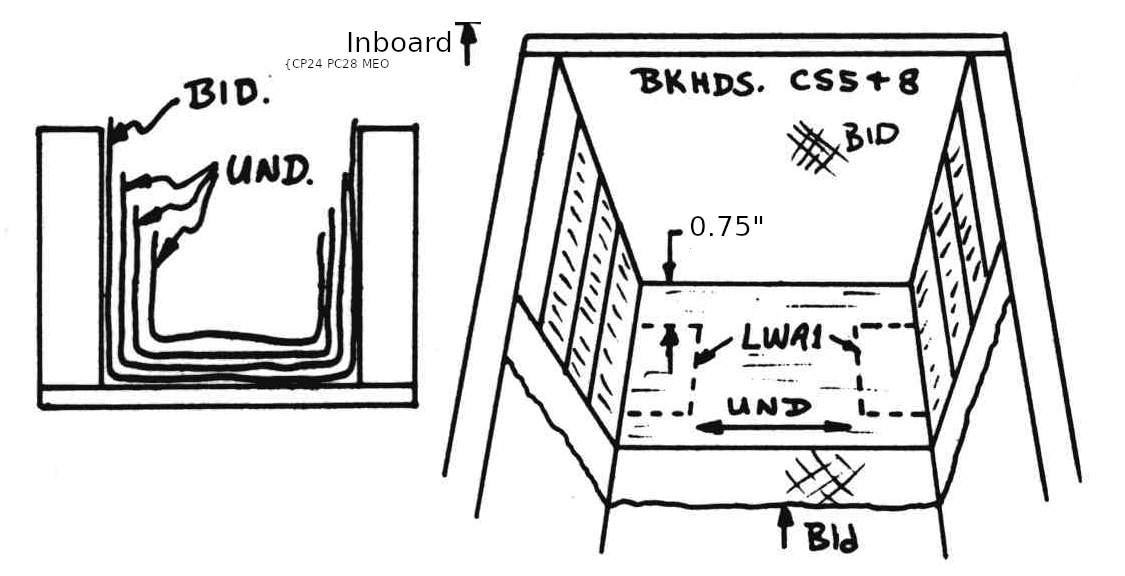 Inboard
{CP24 PC28 MEO
BID.
UND.
BKHDS. CS5+8
BID
0.75"
LWA1
UND
BId